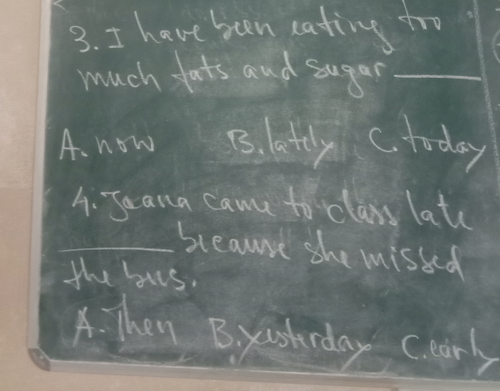 3. I have been eating too
much fats and sugar ______
A. now B. lately C. today
4. Joana came to class late
______ because she missed
the bus.
A. Then B. yesterday C. early